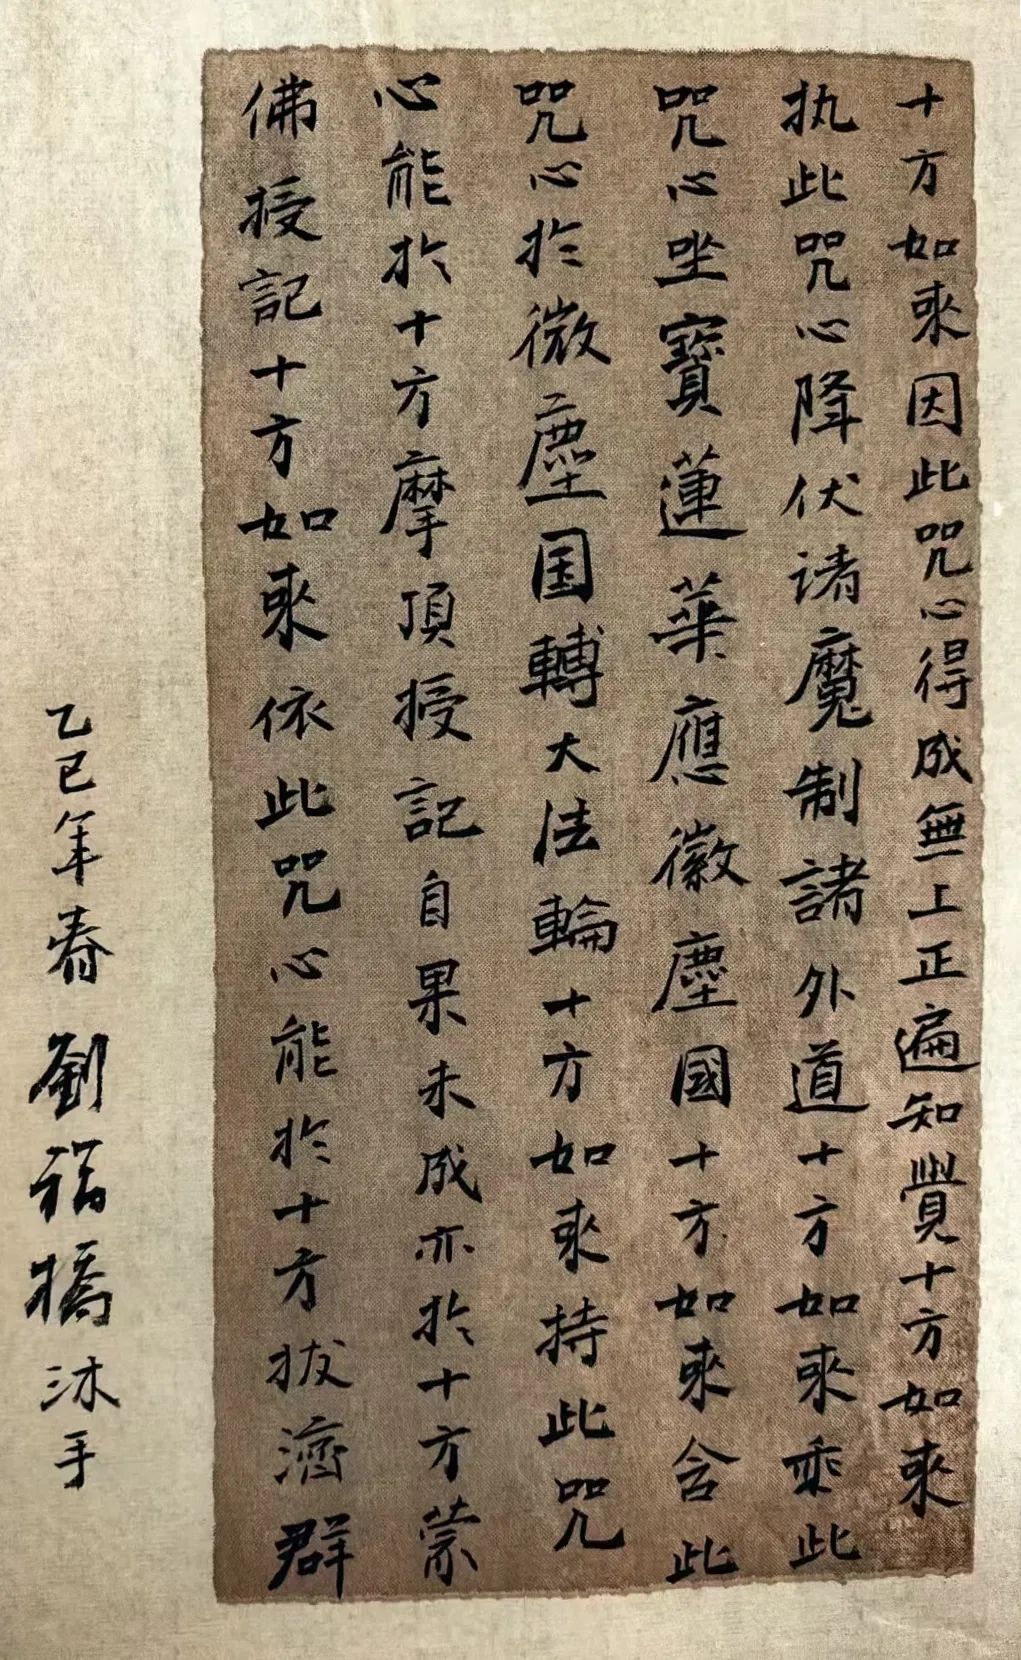 十方如來因此咒心得成無上正遍知覺十方如來
执此咒心降伏诸魔制諸外道十方如來乘此
咒心坐寶蓮華應微塵國十方如來含此
咒心於微塵国轉大法輪十方如來持此咒
心能於十方摩頂授記自果未成亦於十方蒙
佛授記十方如來依此咒心能於十方拔濟群
乙巳年春劉福橋沐手